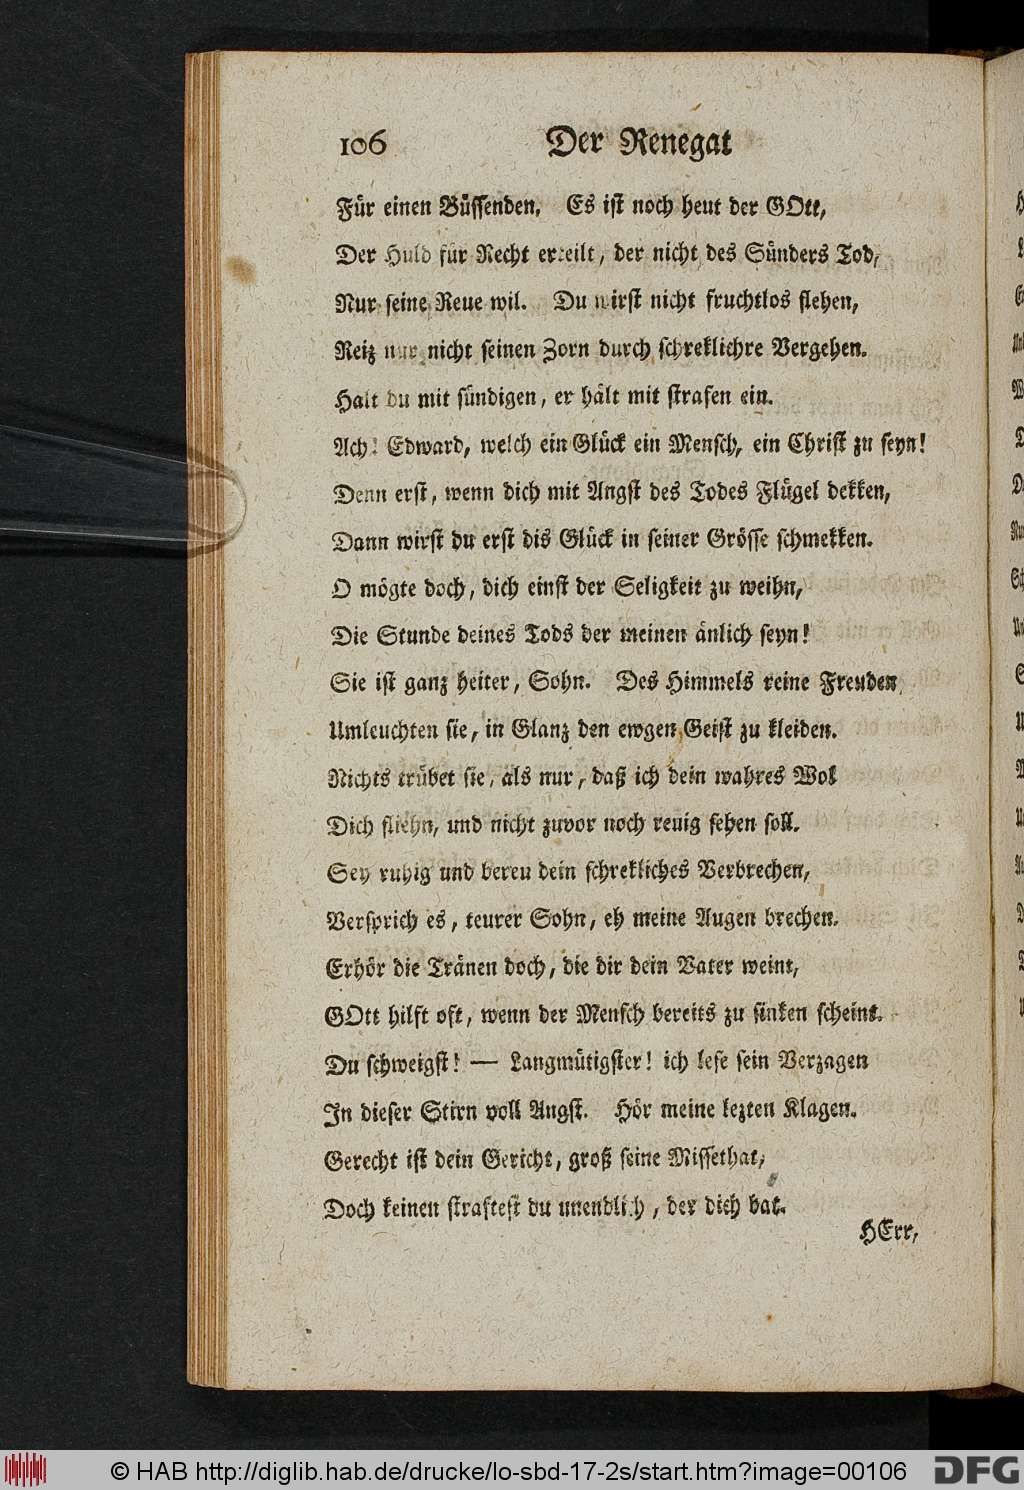 106 Der Renegat
Für einen Büssenden. Es ist noch heut der GOtt,
Der Huld für Recht erteilt, der nicht des Sünders Tod,
Nur seine Reue wil. Du wirst nicht fruchtlos flehen,
Reiz nur nicht seinen Zorn durch schreklichre Vergehen.
Halt du mit sündigen, er hält mit strafen ein.
Ach! Edward, welch ein Glück ein Mensch, ein Christ zu seyn!
Denn erst, wenn dich mit Angst des Todes Flügel dekken,
Dann wirst du erst dis Glück in seiner Grösse schmekken.
O mögte doch, dich einst der Seligkeit zu weihn,
Die Stunde deines Tods der meinen änlich seyn!
Sie ist ganz heiter, Sohn. Des Himmels reine Freuden,
Umleuchten sie, in Glanz den ewgen Geist zu kleiden.
Nichts trübet sie, als nur, daß ich dein wahres Wol
Dich fliehn, und nicht zuvor noch reuig sehen soll.
Sey ruhig und bereu dein schrekliches Verbrechen,
Versprich es, teurer Sohn, eh meine Augen brechen.
Erhör die Tränen doch, die dir dein Vater weint,
GOtt hilft oft, wenn der Mensch bereits zu sinken scheint.
Du schweigst! — Langmütigster! ich lese sein Verzagen
In dieser Stirn voll Angst. Hör meine lezten Klagen.
Gerecht ist dein Gericht, groß seine Missethat,
Doch keinen straftest du unendlich, der dich bat.
HErr,
© HAB http://diglib.hab.de/drucke/lo-sbd-17-2s/start.htm?image=00106
DFG